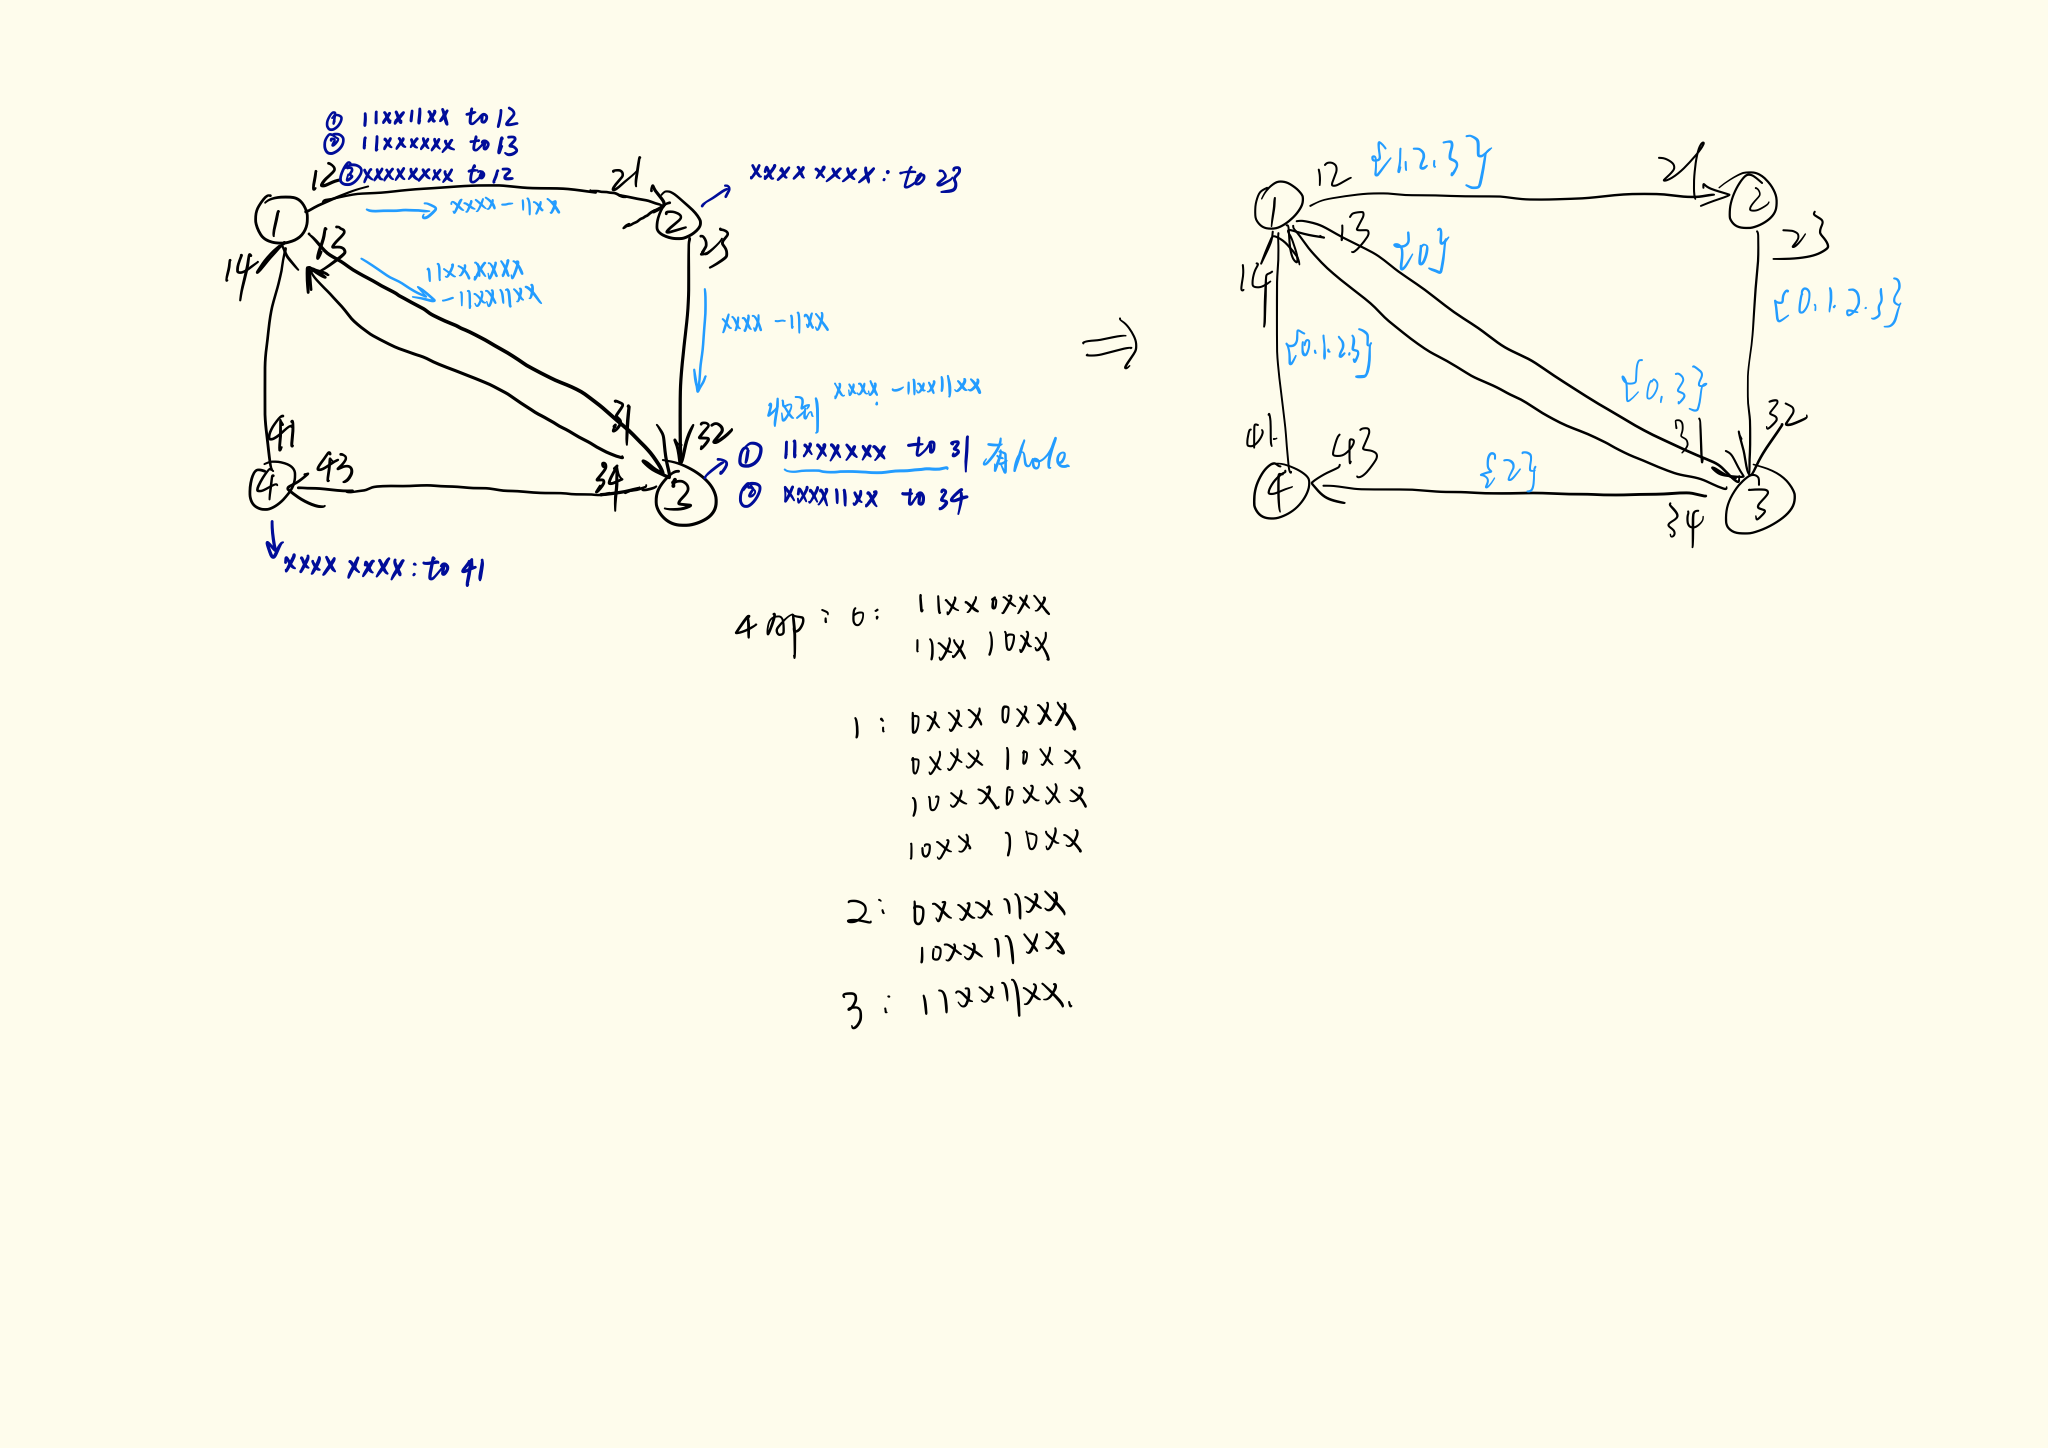 ① 11xx11xx to 12
② 11xxxxxx to 13
③ xxxxxxxx to 12
12
21
xxxx xxxx: to 23
1
2
xxxx - 11xx
13
14
23
11xxxxxx
- 11xx11xx
xxxx - 11xx
收到 xxxx - 11xx11xx
31
32
① 11xxxxxx to 31 有hole
② xxxx11xx to 34
41
43
34
4
3
xxxx xxxx: to 41
⇒
12
{1.2.3}
21
1
2
13
{0}
23
14
{0.1.2.3}
{0.1.2.3}
{0.3}
31
32
41
43
{2}
4
3
34
4 ap: 0: 11xx 0xxx
11xx 10xx
1: 0xxx 0xxx
0xxx 10xx
10xx 0xxx
10xx 10xx
2: 0xxx 11xx
10xx 11xx
3: 11xx11xx.